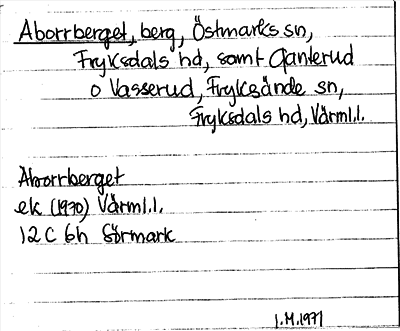 Aborrberget, berg, Östmarks sn,
Fryksdals hd, samt Ganterud
o Vasserud, Fryksände sn,
Fryksdals hd, Värml.l.
Aborrberget
ek (1970) Värml.l.
12 C 6h Sörmark
1.M.1971